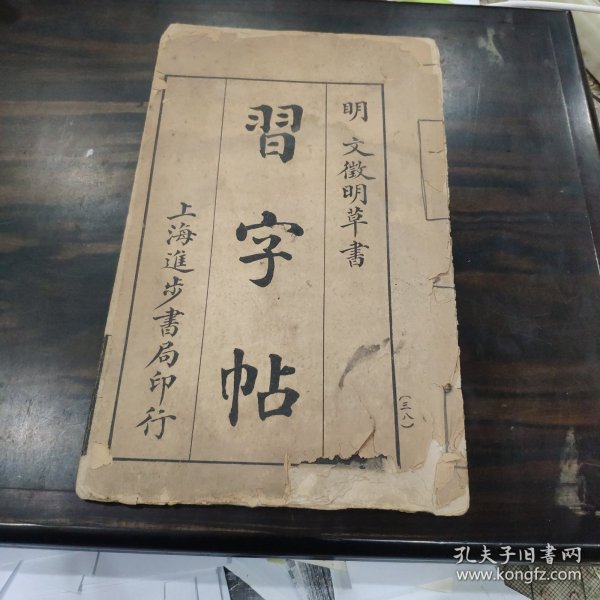 明 文徵明草書
習字帖
上海進步書局印行
(三八)
孔夫子旧書网
www.kongfz.com